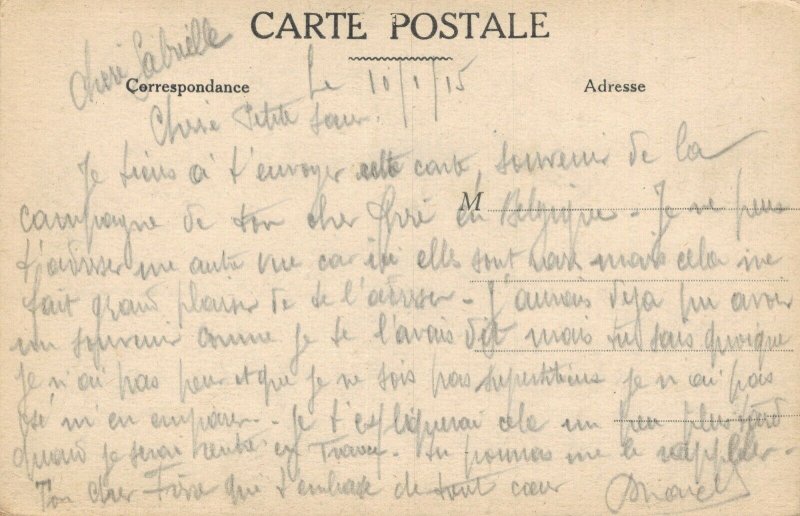 CARTE POSTALE
Chère Gabrielle
Correspondance
Adresse
Le 10/1/15
Chère Petite Sœur.
Je tiens à t'envoyer cette carte, souvenir de la
M
campagne de ton cher Frère en Belgique. Je ne peux
t'adresser une autre vue car ici elles sont rares mais cela me
fait grand plaisir de te l'adresser. J'aurais déjà pu avoir
un souvenir comme je te l'avais dit mais tu sais quoique
je n'ai pas peur et que je ne sois pas superstitieux je n'ai pas
osé m'en emparer. Je t'expliquerai cela un peu plus tard
quand je serai rentré en France. Tu pourras me le rappeler.
Ton cher Frère qui t'embrasse de tout cœur